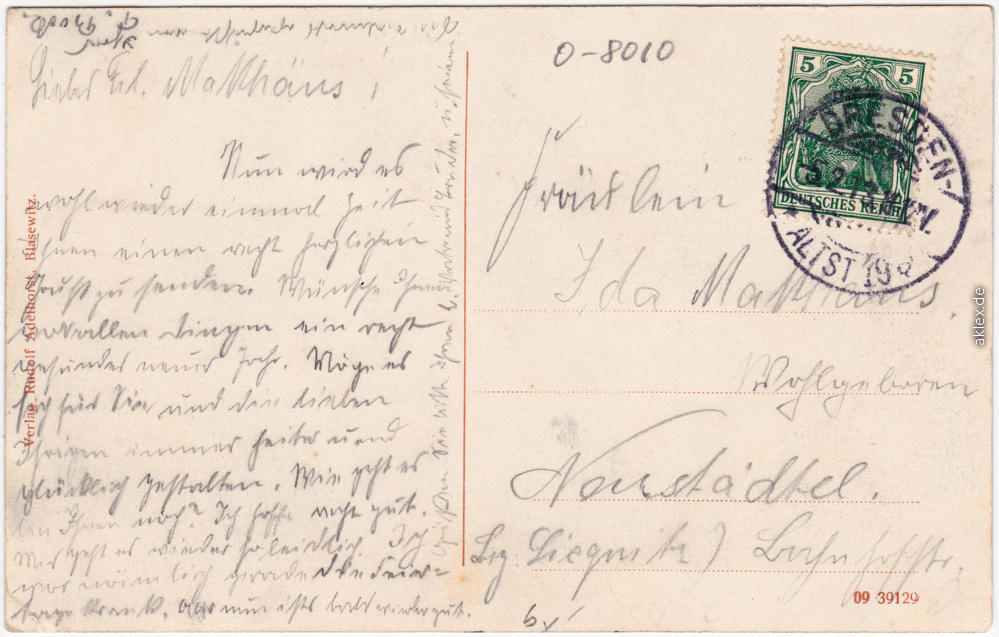 O-8010
5 5
DEUTSCHES REICH
DRESDEN-
ALTST. 19
Liebes Frl. Matthäus!
Nun wird es
wohl wieder einmal Zeit
Ihnen einen recht herzlichen
Gruß zu senden. Wünsche Ihnen
vor allen Dingen ein recht
gesundes neues Jahr. Möge es
sich für Sie und die lieben
Ihrigen immer heiter und
glücklich gestalten. Wie geht es
bei Ihnen noch? Ich hoffe recht gut.
Mir geht es wieder so leidlich. Ich
war nämlich gerade die Feier-
tage krank. Aber nun ists bald wieder gut.
Fräulein
Ida Matthäus.
Wohlgeboren
Neustädtel.
Bez. Liegnitz) Bahnhofstr.
Verlag Rudolf Adelhorst, Blasewitz.
09 39129
aklex.de